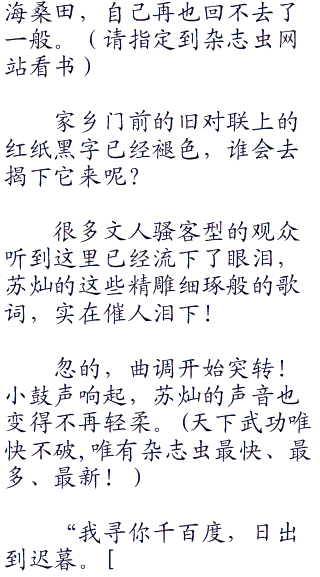 海桑田，自己再也回不去了
一般。（请指定到杂志虫网
站看书）
家乡门前的旧对联上的
红纸黑字已经褪色，谁会去
揭下它来呢?
很多文人骚客型的观众
听到这里已经流下了眼泪，
苏灿的这些精雕细琢般的歌
词，实在催人泪下!
忽的，曲调开始突转!
小鼓声响起，苏灿的声音也
变得不再轻柔。(天下武功唯
快不破,唯有杂志虫最快、最
多、最新! )
“我寻你千百度，日出
到迟暮。[